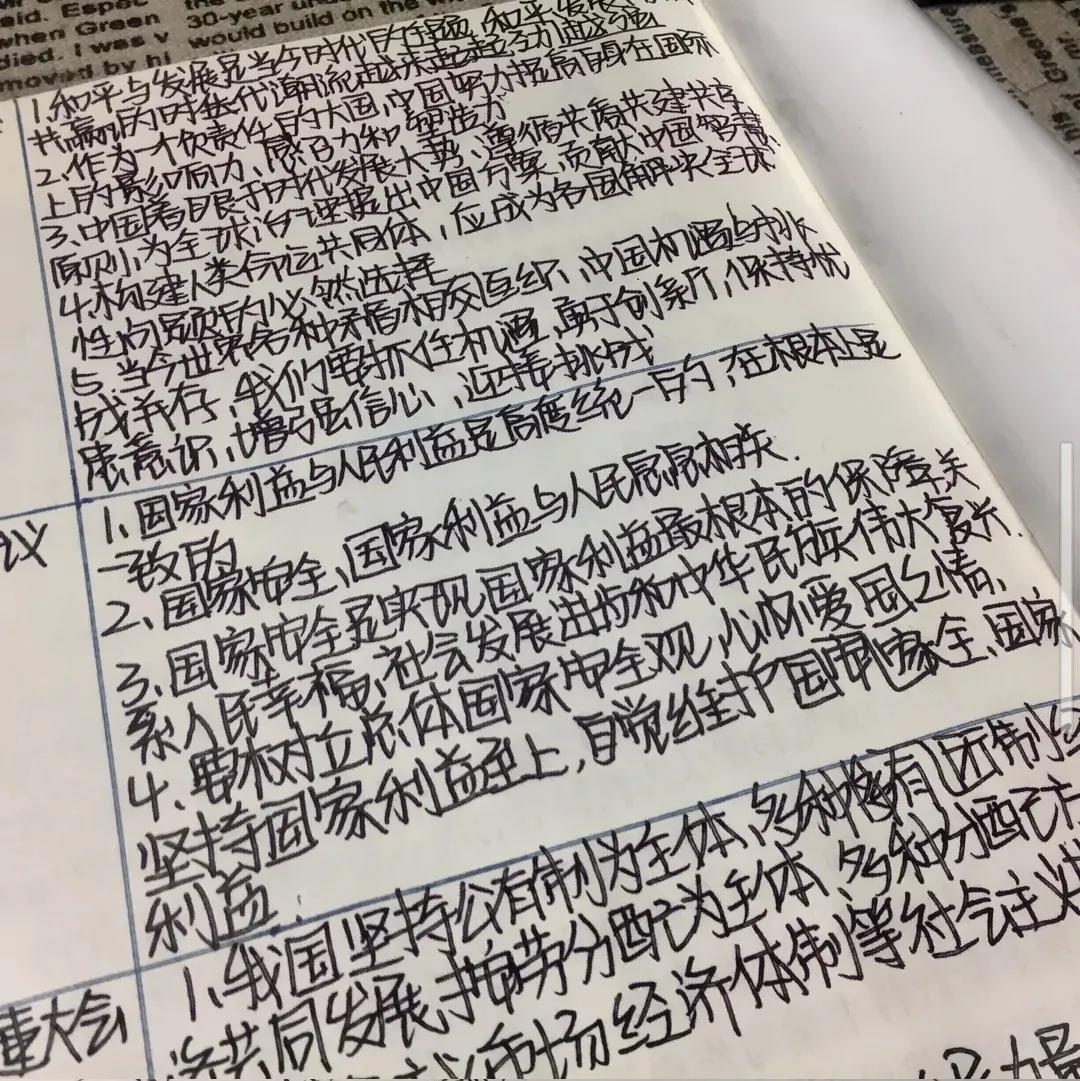 said. Espec
when Green
died. I was v
moved by hi
the
30-year und
would build on the w
1.和平与发展是当今时代的主题,和平发展
共赢的时代潮流越来越强劲
2.作为一个负责任的大国,中国努力提高自身在国际
上的影响力、感召力和塑造力
3.中国着眼于时代发展大势,遵循共商共建共享
原则,为全球治理提出中国方案,贡献中国智慧
4.构建人类命运共同体,应成为各国解决全球
性问题的必然选择
5.当今世界各种矛盾相交互织,中国机遇与挑
战并存,我们要抓住机遇,勇于创新,保持忧
患意识,增强信心,迎接挑战
议
1.国家利益与人民利益是高度统一的,在根本上是
一致的
2.国家安全、国家利益与人民息息相关.
3.国家安全是实现国家利益最根本的保障,关
系人民幸福、社会发展进步和中华民族伟大复兴.
4.要树立总体国家安全观,心怀爱国之情,
坚持国家利益至上,自觉维护国家安全、国家
利益.
重大会
1.我国坚持公有制为主体、多种所有
共同发展,按劳分配为主体、多种分配方
市场经济体制等社会主义